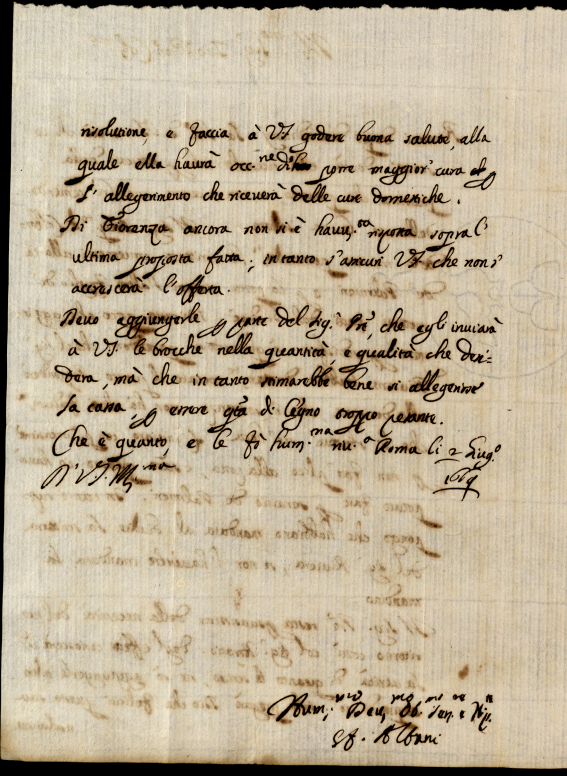 risolutione, e faccia à VS godere buona salute, alla
quale ella haurà occ.ne di porre maggior cura
l'allegerimento che riceverà delle cure domestiche.
Di Fiorenza ancora non si è havu.ta risposta sopra l'
ultima proposta fatta; in tanto s'assicuri VS che non s'
accrescerà l'offerta.
Devo aggiungerle parte del Sig.r che egli inviarà
à VS. le brocche nella quantità, e qualità che desi=
dera, mà che in tanto stimarebbe bene si allegerisse
la cassa, essere di legno troppo pesante.
Che è quanto, e le fò hum.ma Roma li 2 Lug.o
D' VS. Ill.ma
Hum. Dev. Ob. Ser.
Albani